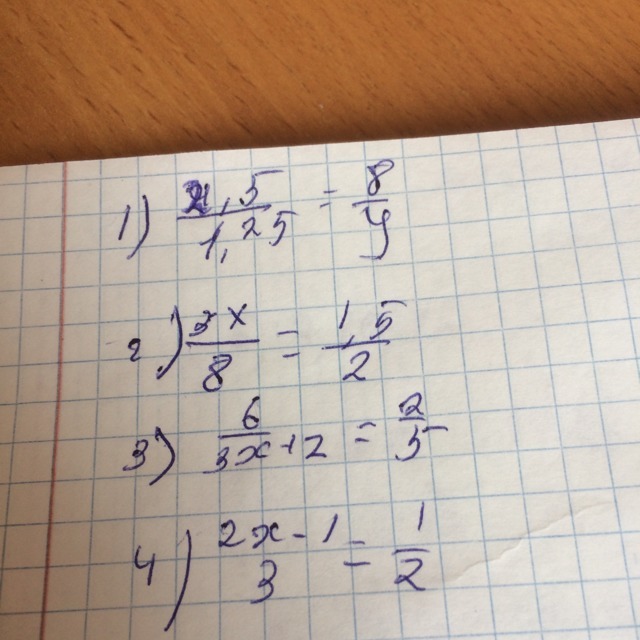 1) 2,5/1,25 = 8/y
2) 3x/8 = 15/2
3) 6/3x+2 = 2/5
4) 2x-1/3 = 1/2